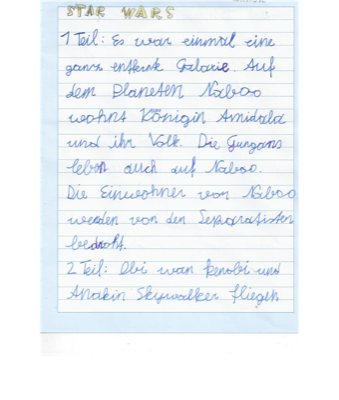 STAR WARS
1 Teil: Es war einmal eine
ganz entfernte Galaxie. Auf
dem Planeten Naboo
wohnt Königin Amidala
und ihr Volk. Die Gungans
leben auch auf Naboo.
Die Einwohner von Naboo
werden von den Separatisten
bedroht.
2 Teil: Obi wan kenobi und
Anakin Skywalker fliegen